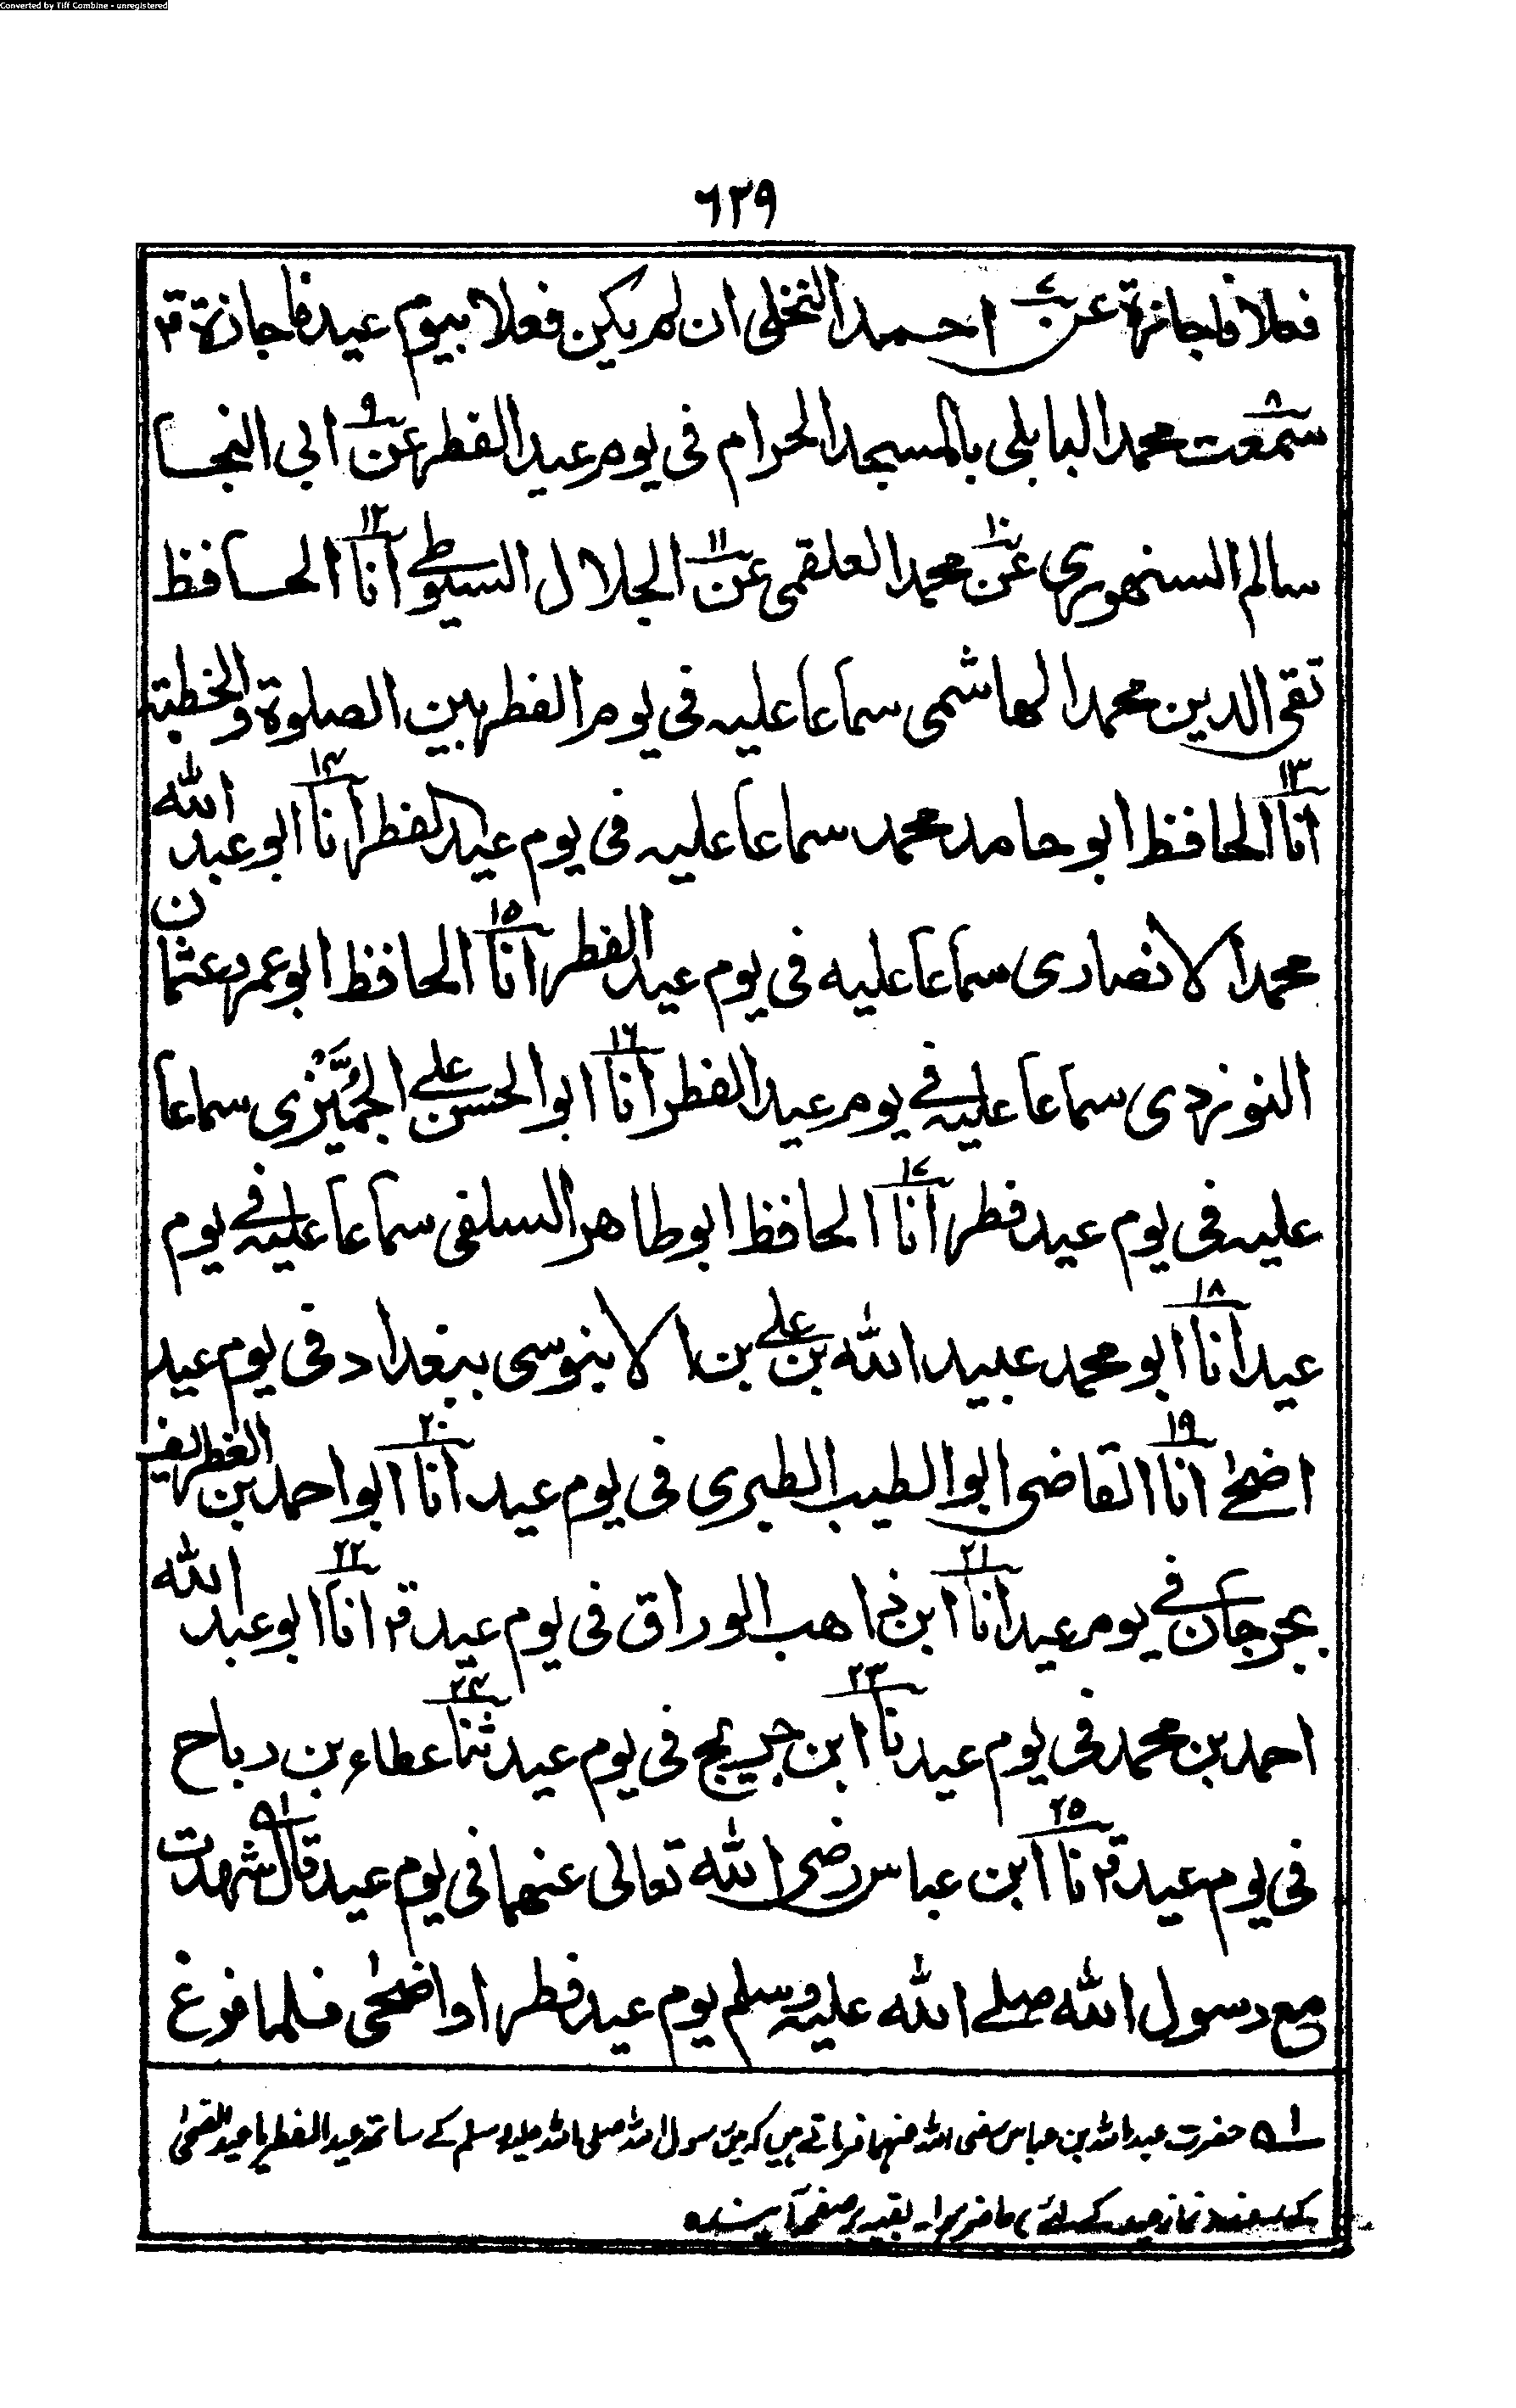 Converted by Tiff Combine - unregistered
٦٣٩
فعلا فاجازة عن ٧ احمد النخلی ان لم یکن فعلا بیوم عید فاجازة قر
سمعت ٨ محمد البابلی بالمسجد الحرام فی یوم عید الفطر عن ٩ ابی النجا
سالم السنهوری عن ١٠ محمد العلقمی عن ١١ الجلال السیوطی انا ١٢ الحافظ
تقی الدین محمد الهاشمی سماعا علیه فی یوم الفطر بین الصلوة والخطبته
انا ١٣ الحافظ ابو حامد محمد سماعا علیه فی یوم عید الفطر انا ١٤ ابو عبد الله
محمد الانصاری سماعا علیه فی یوم عید الفطر انا ١٥ الحافظ ابو عمر عثمان
النوزدی سماعا علیه فی یوم عید الفطر انا ١٦ ابو الحسن علی الجُمَّیزی سماعا
علیه فی یوم عید فطر انا ١٧ الحافظ ابو طاهر السلفی سماعا علیه فی یوم
عید انا ١٨ ابو محمد عبید الله بن علی بن الابنوسی ببغداد فی یوم عید
اضحی انا ١٩ القاضی ابو الطیب الطبری فی یوم عید انا ٢٠ ابو احمد بن الغطریف
بجرجان فی یوم عید انا ٢١ ابن زاهب الوراق فی یوم عید قر انا ٢٢ ابو عبد الله
احمد بن محمد فی یوم عید نا ٢٣ ابن جریج فی یوم عید ثنا ٢٤ عطاء بن رباح
فی یوم عید قر نا ٢٥ ابن عباس رضی الله تعالی عنهما فی یوم عید قال ١ه شهدت
مع رسول الله صلے الله علیه وسلم یوم عید فطر او اضحی فلما فرغ
١ه حضرت عبد الله بن عباس رضی الله عنہما فرماتے ہیں کہ میں رسول الله صلی الله علیہ وسلم کے ساتھ عید الفطر یا عید الضحٰی
کے نماز عید کے لئے حاضر ہوا۔ بقیہ بر صفحہ آیندہ